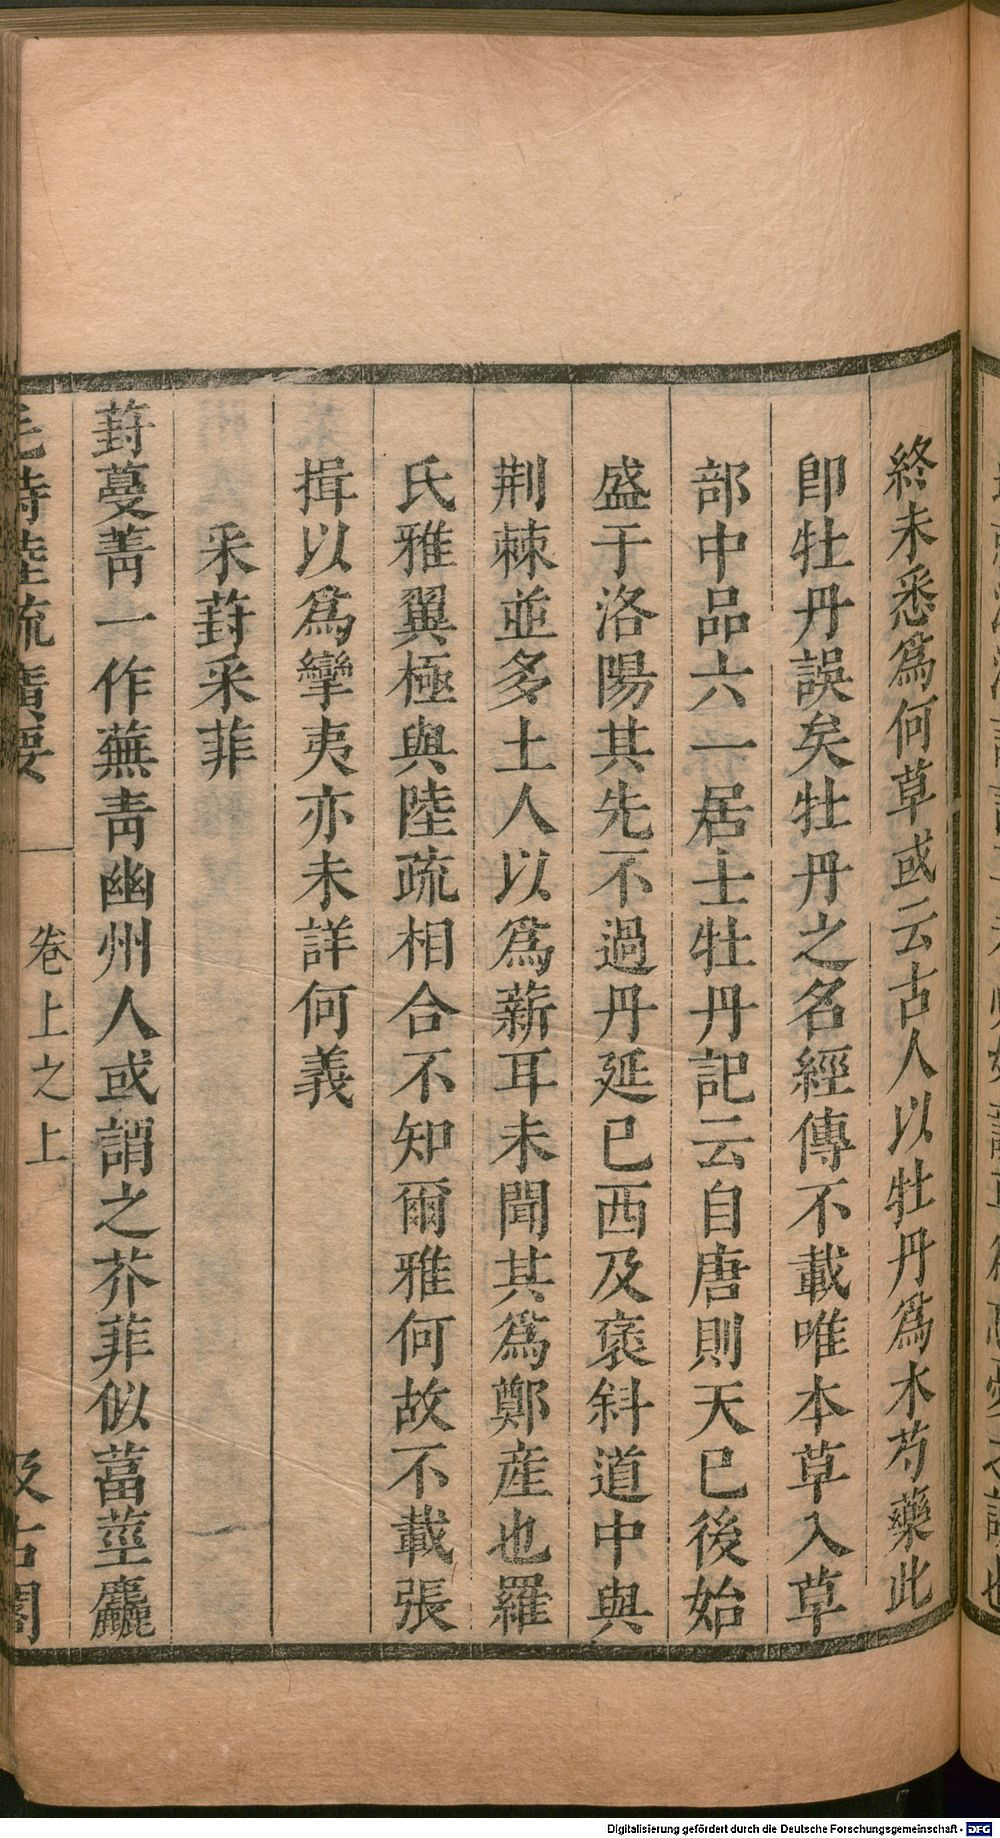 終未悉爲何草或云古人以牡丹爲木芍藥此
卽牡丹誤矣牡丹之名經傳不載唯本草入草
部中品六一居士牡丹記云自唐則天已後始
盛于洛陽其先不過丹延已西及褒斜道中與
荆棘並多土人以爲薪耳未聞其爲鄭産也羅
氏雅翼極與陸疏相合不知爾雅何故不載張
揖以爲攣夷亦未詳何義
采葑采菲
葑蔓菁一作蕪靑幽州人或謂之芥菲似葍莖麤
毛詩陸疏廣要
卷上之上
汲古閣
Digitalisierung gefördert durch die Deutsche Forschungsgemeinschaft - DFG